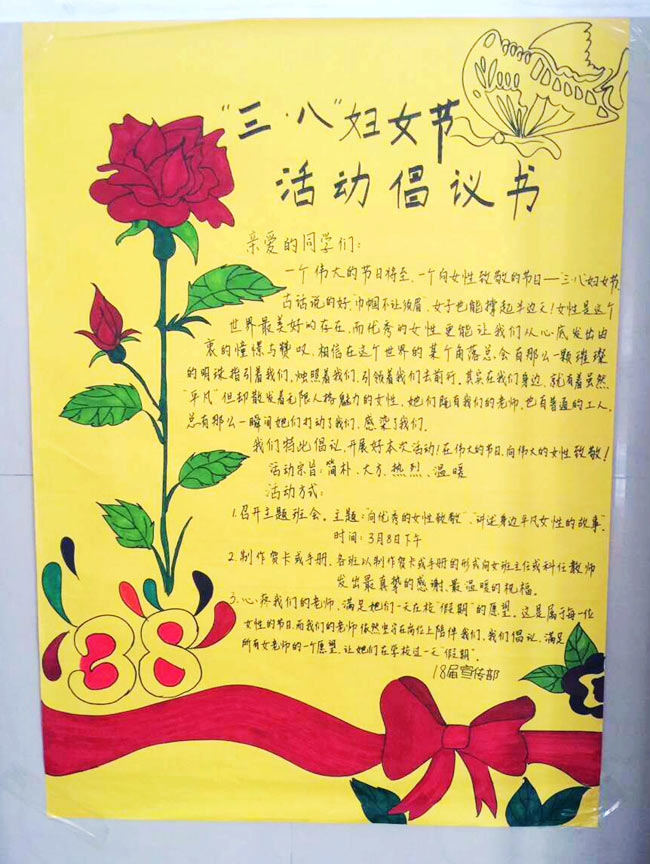 "三·八"妇女节
活动倡议书
亲爱的同学们:
一个伟大的节日将至,一个向女性致敬的节日——三·八妇女节
古话说的好,巾帼不让须眉,女子也能撑起半边天!女性是这个
世界最美好的存在,而优秀的女性更能让我们从心底发出由
衷的憧憬与赞叹。相信在这个世界的某个角落总会有那么一颗璀璨
的明珠指引着我们,烛照着我们,引领着我们去前行。其实在我们身边,就有着虽然
"平凡"但却散发着无限人格魅力的女性。她们既有我们的老师,也有普通的工人。
总有那么一瞬间她们打动了我们,感染了我们。
我们特此倡议,开展好本次活动!在伟大的节日,向伟大的女性致敬!
活动宗旨:简朴、大方、热烈、温暖
活动方式:
1.召开主题班会。主题:"向优秀的女性致敬","讲述身边平凡女性的故事"。
时间:3月8日下午
2.制作贺卡或手册。各班以制作贺卡或手册的形式向女班主任或科任教师
发出最真挚的感谢,最温暖的祝福。
3.心疼我们的老师,满足她们一天在校"假期"的愿望。这是属于每一位
女性的节日,而我们的老师依然坚守在岗位上陪伴我们。我们倡议,满足
所有女老师的一个愿望,让她们在学校过一天"假期"。
18届宣传部
38